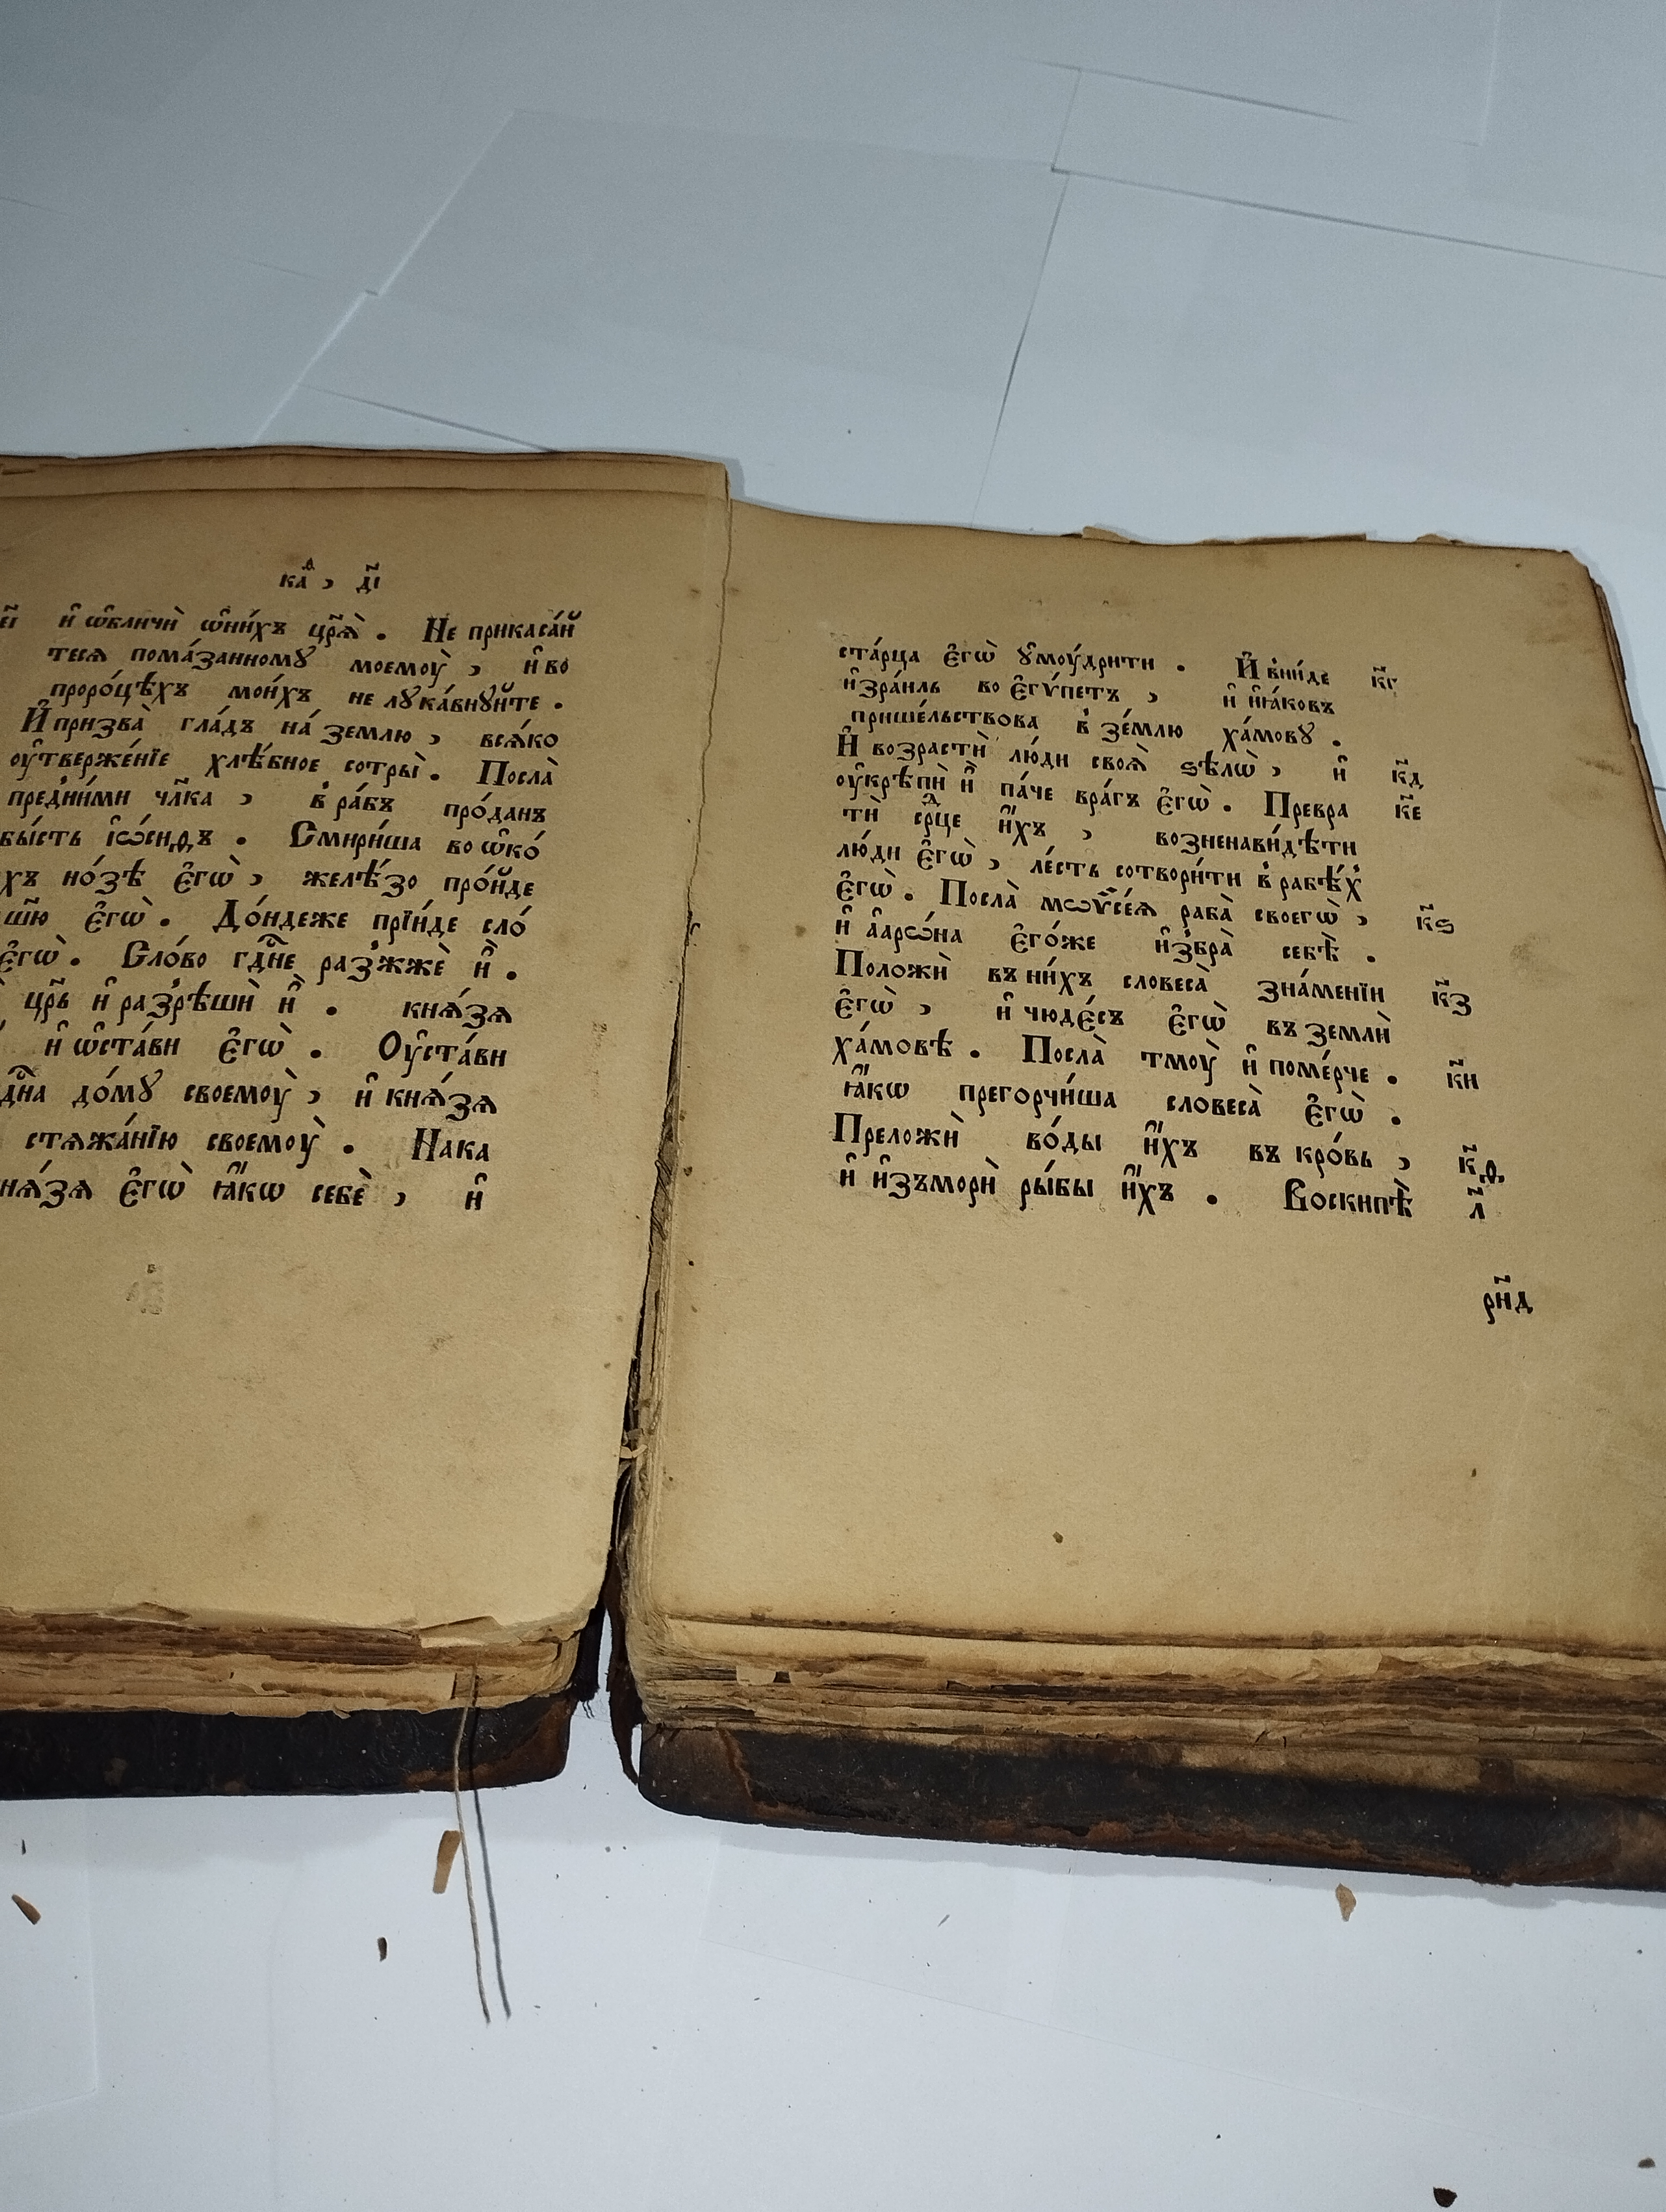 каⷣ , д҃і
є҃і и҆ ѡ҆бличѝ ѡ҆ни́хъ цр҃ѧ̀ . Не прикаса́й
тесѧ пома́занномꙋ моемоу̀ , и҆ во
проро́цѣхъ мои́хъ не лꙋка́внꙋйте .
И҆ призва̀ гла́дъ на́ землю , всѧ́ко
оу҆твержє́нїе хлѣ́бное сотры̀ . Посла̀
пред̾ни́ми чл҃ка , в̾ ра́бъ про́данъ
бы́сть і҆ѡ́сиѳъ . Смири́ша во ѡ҆ко́
хъ но́зѣ є҆гѡ̀ , желѣ́зо про́йде
ш҃ю є҆гѡ̀ . До́ндеже прїи́де сло́
є҆гѡ̀ . Сло́во гдⷭ҇не раз̾жжѐ и҆̀ .
цр҃ь и҆ раз̾рѣшѝ и҆̀ . кнѧ́зѧ
и҆ ѡ҆ста́ви є҆гѡ̀ . Оу҆ста́ви
дⷭ҇на до́мꙋ своемоу̀ , и҆ кнѧ́зѧ
стѧжа́нїю своемоу̀ . Нака
нѧ́зѧ є҆гѡ̀ ꙗ҆́кѡ себѐ , и҆
ста́рца є҆гѡ̀ ꙋ҆моу́дрити . И҆ в̾ни́де к҃г
и҆зра́иль во є҆гѵ́петъ , и҆ и҆ꙗ́ковъ
прише́льствова в̾ зе́млю ха́мовꙋ .
И҆ возрастѝ лю́ди своѧ̀ ѕѣлѡ̀ , и҆ к҃д
оу҆крѣпѝ и҆̀ па́че вра́гъ є҆гѡ̀ . Превра к҃є
тѝ срⷣце и҆́хъ , возненави́дѣти
лю́ди є҆гѡ̀ , ле́сть сотвори́ти в̾ рабѣ́х̾
є҆гѡ̀ . Посла̀ мѡѷсе́ѧ раба̀ своегѡ̀ , к҃ѕ
и҆ а҆арѡ́на є҆го́же и҆з̾бра̀ себѣ̀ .
Положѝ въ ни́хъ словеса̀ зна́менїи к҃з
є҆гѡ̀ , и҆ чюде́съ є҆гѡ̀ въ землѝ
ха́мовѣ . Посла̀ тмоу̀ и҆ поме́рче . к҃и
ꙗ҆́кѡ прегорчи́ша словеса̀ є҆гѡ̀ .
Преложѝ во́ды и҆́хъ въ кро́вь , к҃ѳ
и҆ и҆зъморѝ ры́бы и҆́хъ . Воскипѣ̀ л҃
рн҃д